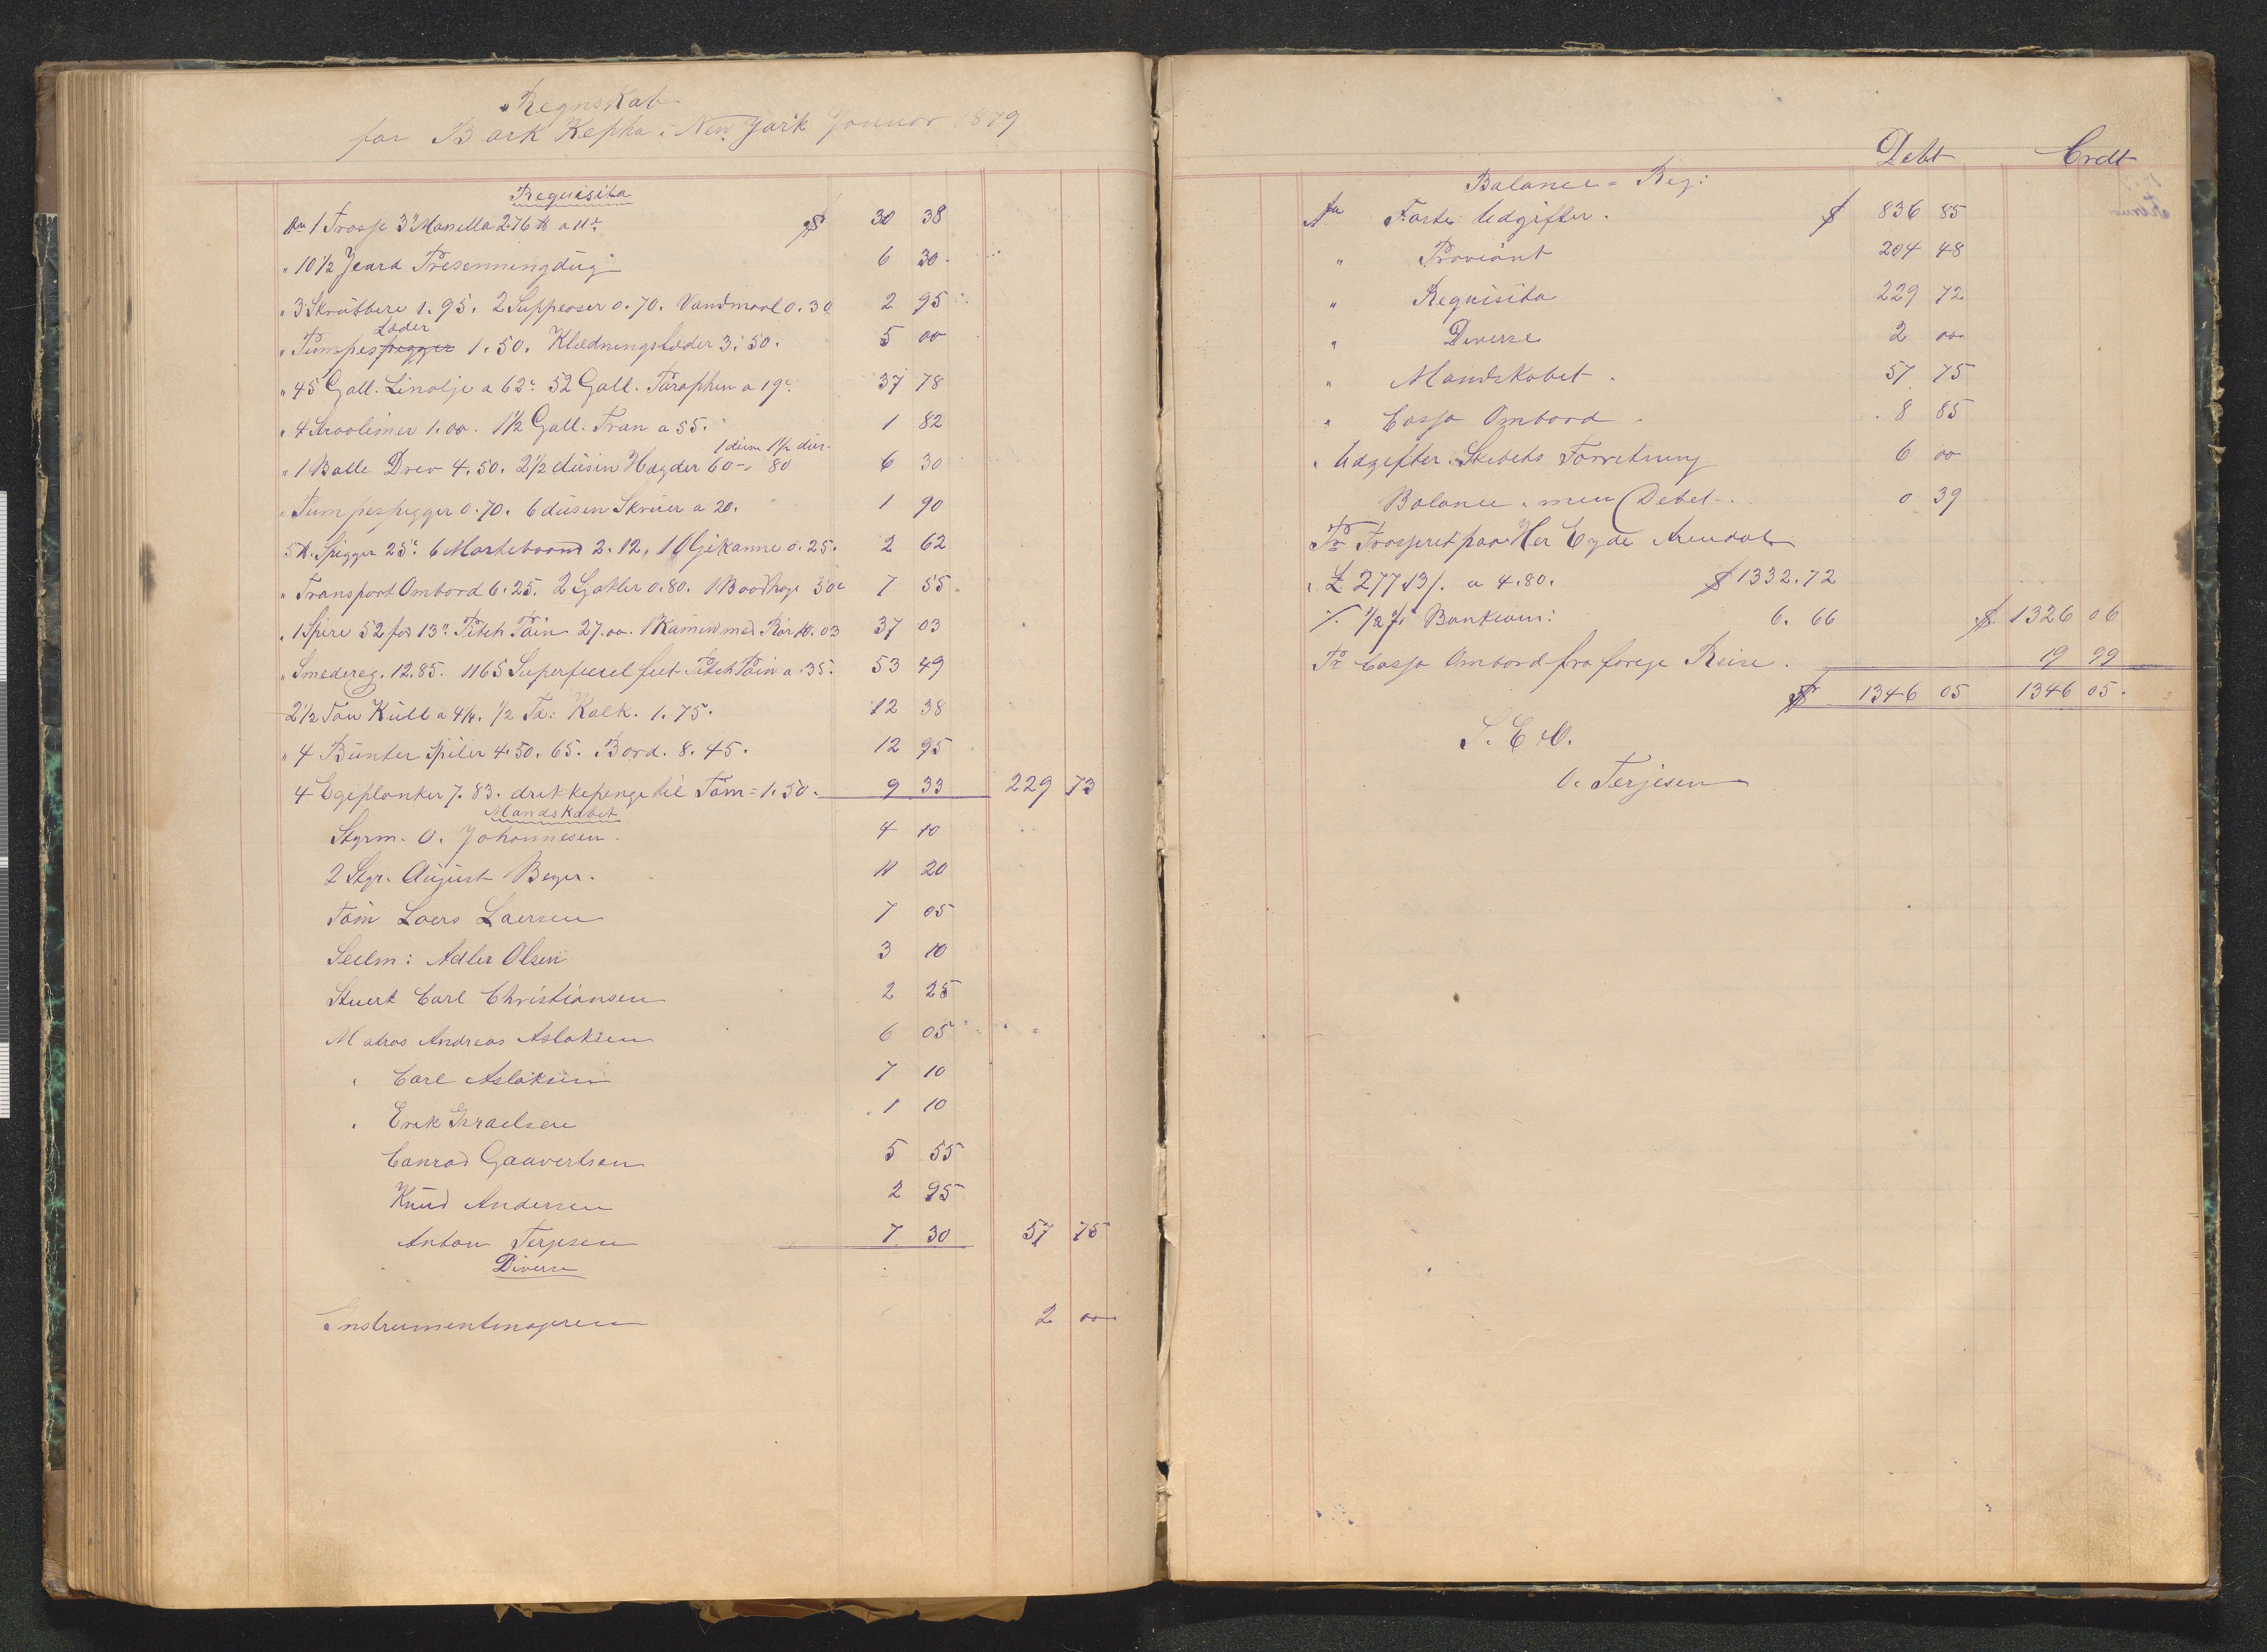 Regnskab
for Bark Kepha i New York Januar 1879
Requisita
An 1 Trosse 3" Manella 276 ℔ a 11c. $ 30 38
" 10 1/2 Jeard Presenningdug 6 30
" 3 Skrubbere 1.95. 2 Suppeoser 0.70. Vandmaal 0.30 2 95
Læder
" Pumpespigger 1.50. Klædningslæder 3.50. 5 00
" 45 Gall. Linolje a 62c. 52 Gall. Paraphin a 19c. 37 78
" 4 1.00. 1 1/2 Gall. Tran a 55. 1 82
1 dusin 1 1/2 dus.
" 1 Balle Drev 4.50. 2 1/2 dusin Hægder 60 - 80 6 30
" Pumpespigger 0.70. 6 dusin Skruer a 20. 1 90
5 ℔. Spigger 25c. 6 Mastebaand 2.12. 1 Oljekanne 0.25. 2 62
" Transport Ombord 6.25. 2 Gafler 0.80. 1 Baadhage 50c 7 55
" 1 Spire 52 fod 13" Pitch Pain 27.00. 1 Kamin med Rör 10.03 37 03
" Smedereg. 12.85. 1165 Superfeciel feet Pitch Pain a 35. 53 49
2 1/2 Ton Kull a 4 1/4. 1/2 Td: Kalk. 1.75. 12 38
" 4 Bunter Spiler 4.50. 65. Bord. 8.45. 12 95
4 Egeplanker 7.83. drikkepenge til Töm = 1.50. 9 33 229 73
Mandskabet
Stgrm. O. Johannesen. 4 10
2 Stgr. August Beyer. 11 20
Töm Laers Laersen 7 05
Seelm: Adler Olsen 3 10
Stuert Carl Christiansen 2 25
Matros Andreas Aslaksen 6 05
" Carl Aslaksen 7 10
" Erik Israelsen 1 10
Conrad Gaavertsen 5 55
Knud Andersen 2 95
Anton Terjesen 7 30 57 75
Diverse
Instrumentmageren 2 00
Debt Credt
Balance = Reg:
An Faste Udgifter. $ 836 85
" Proviant 204 48
" Requisita 229 72
" Diverse 2 00
" Mandskabet. 57 75
" Cassa Ombord. 8 85
" Udgifter. Skibets Forretning 6 00
Balance. men Debet. 0 39
Pr Trasseret paa Her Eyde Arendal
" £ 277.13/. a 4.80. $ 1332.72
./. 1/2 % Bankcom: 6.66 $ 1326 06
Pr Cassa Ombord fra forege Reise. 19 99
$ 1346 05 1346 05.
S. E & O.
O. Terjesen